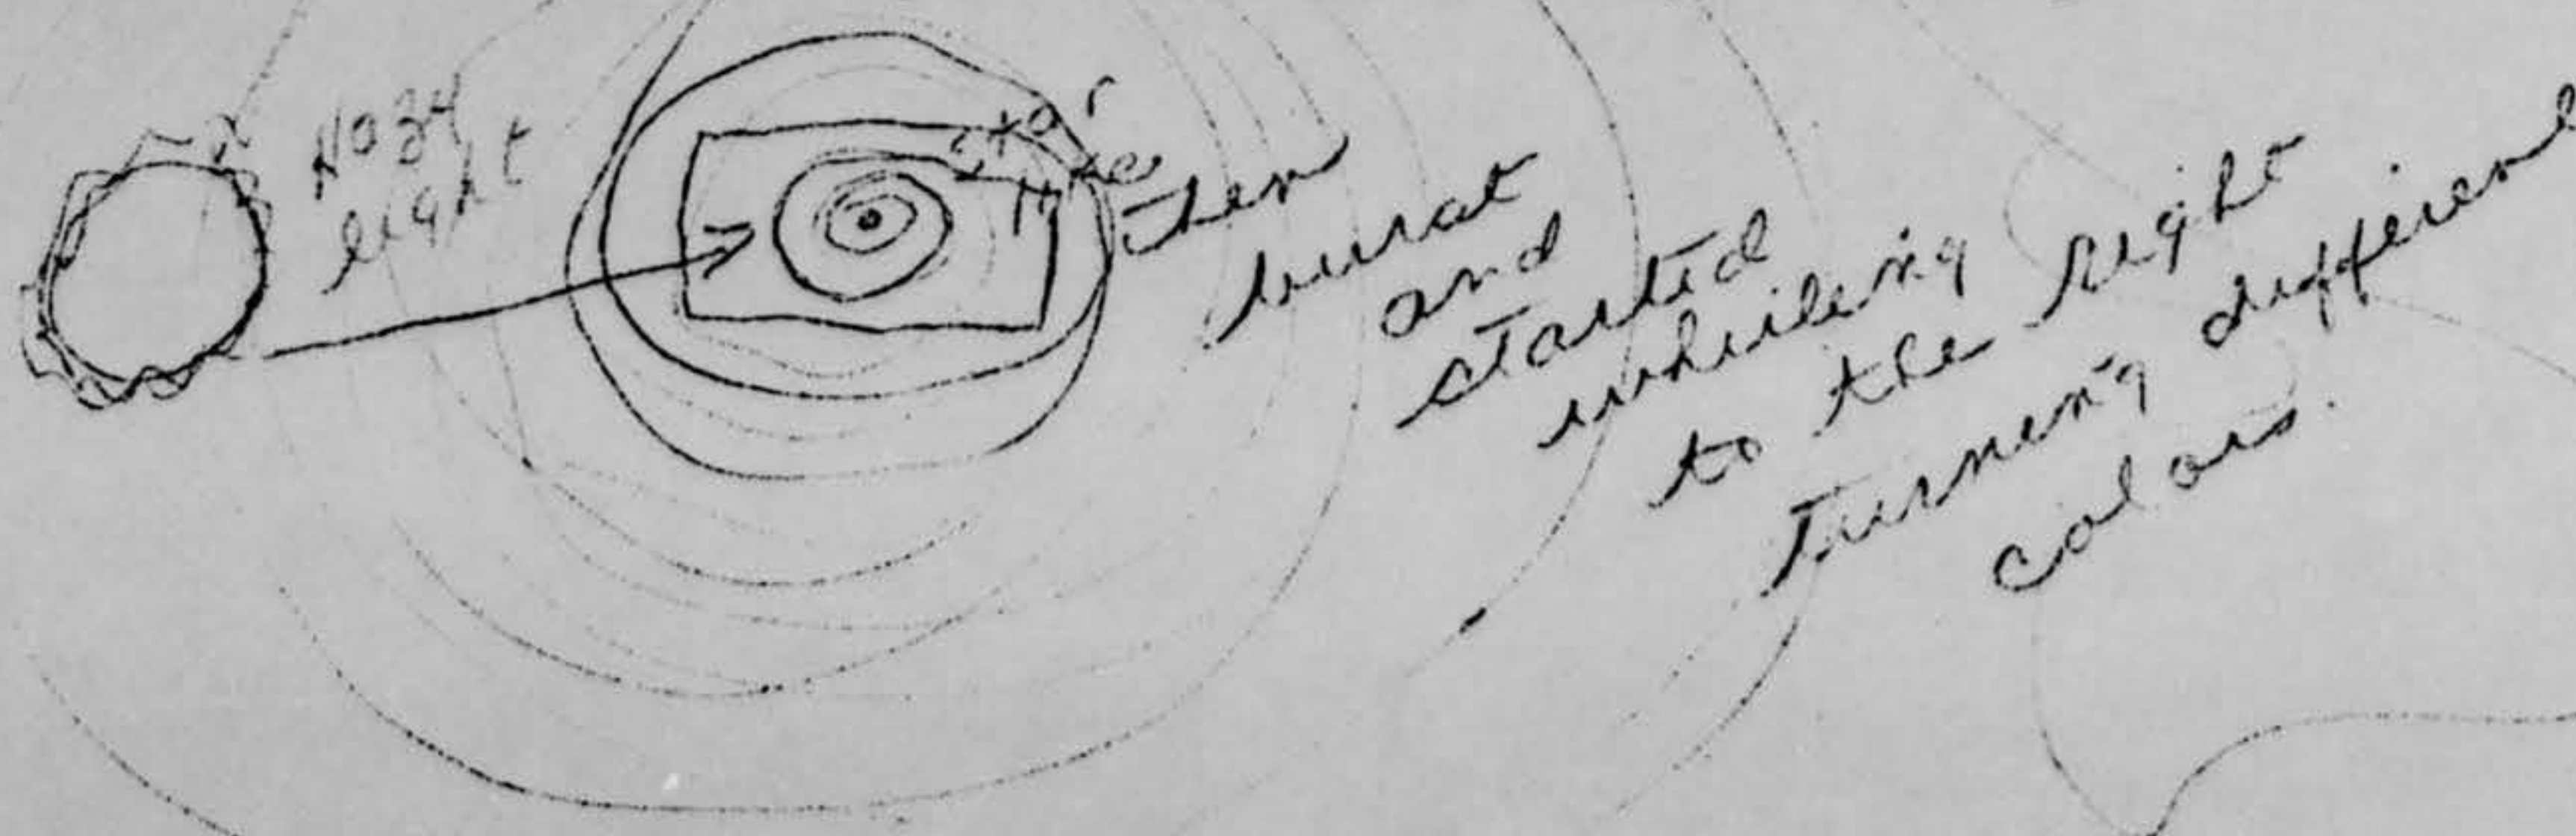 Hazy
light
star
like
Then
burst
and
started
whirleing
to the Right
Turning different
colors.